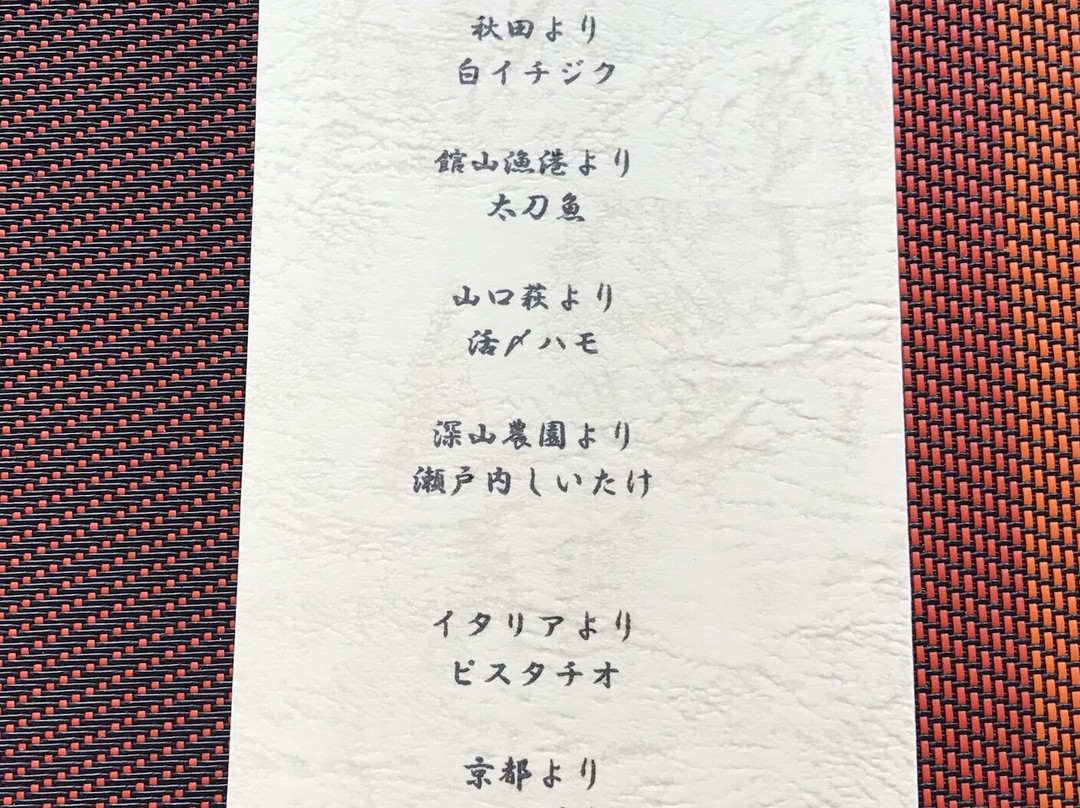 秋田より
白イチジク
館山漁港より
太刀魚
山口萩より
活〆ハモ
深山農園より
瀬戸内しいたけ
イタリアより
ピスタチオ
京都より